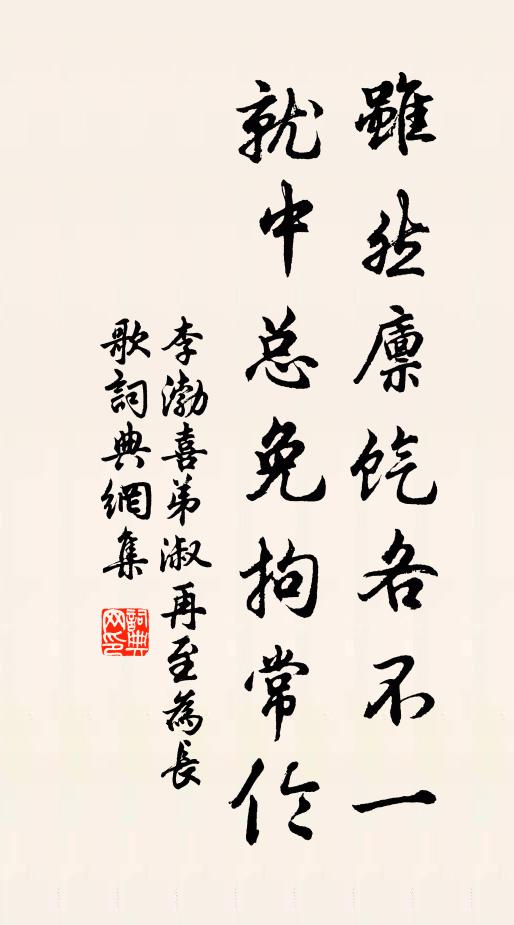 雖然廪饩各不一
就中总免拘常伦
李渤喜弟淑再至為長
歌詞典網集
詞典
网印